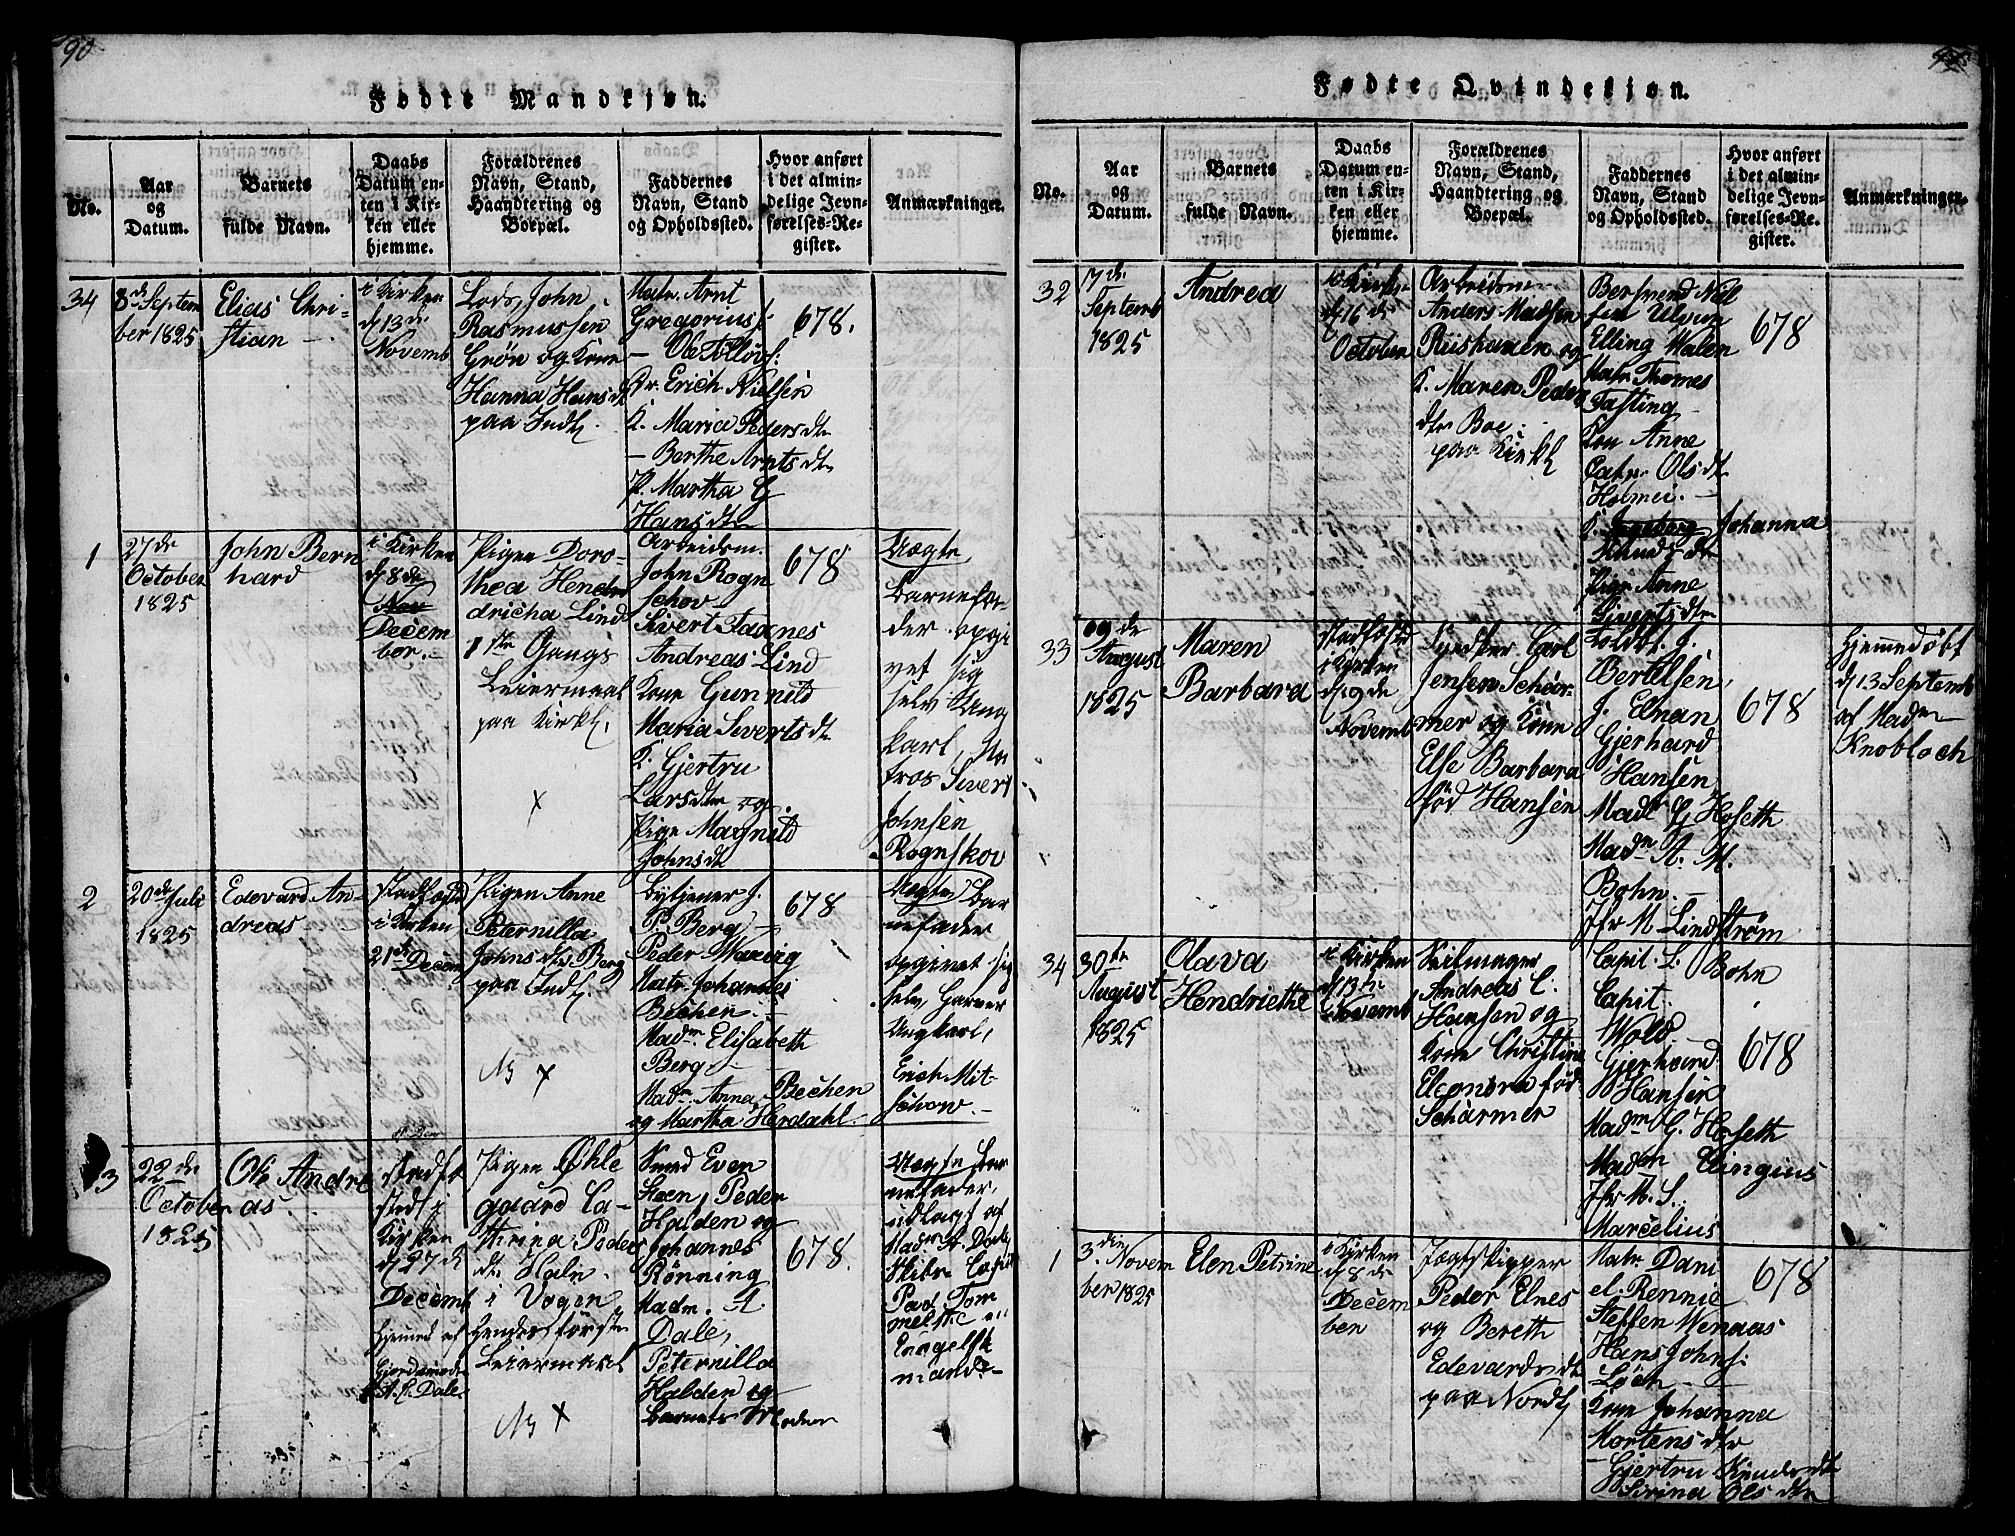 90
Fødte Mandkjøn.
No.
Aar
og
Datum.
Barnets
fulde Navn.
Daabs
Datum en-
ten i Kir-
ken eller
hjemme.
Forældrenes
Navn, Stand,
Haandtering og
Boepæl.
Faddernes
Navn, Stand
og Opholdssted.
Hvor anført
i det almin-
delige Jevn-
førelses-Re-
gister.
Anmærkninger.
34
8de Septem
ber 1825
Elias Chri-
stian
i Kirken
d 13de
Novemb
Lods John
Rasmussen
Grön og Kone
Hanna Hansdt
paa Indl.
Matr. Arnt
Gregoriuss:
Erich Nielsen
K. Maria Pedersdtr
Berthe Arntsdtr
P. Martha G
Hansdtr
678.
1
27de
October
1825
John Bern
hard
i Kirken
d 8de
Nov
Decem
ber.
Pigen Doro-
thea Hen
dricha Lind
1ste Gangs
Leiermaal
paa Kirkl.
x
Arbeidsm.
John Rogn
schov
Sivert Tagnes
Andreas Lind
Kone Gunnild
Maria Sivertsdtr
K. Gjertru
Larsdtr og
Pige Magnild
Johnsdt
678
Uægte
Barnefa
der opgi
vet sig
selv Ung
karl, Ma
tros Sivert
Johnsen
Rognskov
2
20de Juli
1825
Edevard An-
dreas
stadfæstet
i Kirken
21de Decem
Pigen Anne
Peternilla
Johnsdtr Berg
paa Indl.
x
Bytjener J.
P. Berg
Peder Waring
Matr. Johannes
Bechen.
Madm. Elisabeth
Berg
Madm. Anna Bechen
og Martha Herdahl.
678
Uægte Bar
nefader
opgivet sig
selv, Garver
Ungkarl,
Erich Mit-
schow.
3
22de
October
1825
Ole Andre
as.
stadfæ
stet i
Kirken
d 27de
Decemb
Hjemmed. af
Gjordemoder
A. P. Dale
Pigen Øhle
gaard Ca-
thrina Peders
dtr Hals
i Vogen
Hendes förste
Leiermaal
x
Smed Even
Steen, Peder
Halden og
Johannes
Rönning
Madm. A.
Dale,
Peternilla
Halden og
barnets Moder
678.
Uægte Bar
nefader,
udlagt af
Madm A. Dale,
Skibs Capit
Pad Tom
en
Engelsk
mand.
Fødte Qvindekjøn.
No.
Aar
og
Datum.
Barnets
fulde Navn.
Daabs
Datum en-
ten i Kir-
ken eller
hjemme.
Forældrenes
Navn, Stand,
Haandtering og
Boepæl.
Faddernes
Navn, Stand
og Opholdssted.
Hvor anført
i det almin-
delige Jevn-
førelses-Re-
gister.
Anmærkninger.
32
7de
Septemb
1825
Andrea
i Kirken
d 16de
October
Arbeidsm
Anders Madsen
Riishamn og
K. Maren Peders
dtr Boe
paa Kirkl
Elling Walen
Matr. Thomes
Fasting
Kon Anne
Catr. Olsdtr
Holmei.
K. Ingeborg Johanna
Knudsdtr
Pige Anne
Sivertsdtr
678
33
09de
August
1825
Maren
Barbara
stadfæstet
i Kirken
d 9de
Novemb
Snedker Carl
Jensen Schär-
mer og Kone
Else Barbara
föd Hansen
Toldbt. J.
Bertelsen,
J. Elnan
Gjerhard
Hansen
Madm G. Hoseth
Madm A. M.
Bohn.
Jfr M. Lindström
678
Hjemmedøbt
d 13 Septemb
af Madm
Knobloch
34
30te
August
1825
Olava
Hendriethe
i Kirken
d 13de
Novemb
Seilmager
Andreas C.
Hansen og
Kone Christine
Eleonora föd
Schärmer
Capit. L. Bohn
Capit.
Wold
Gjerhard
Hansen
Madm G. Hoseth
Madm Elingius
Jfr M. S.
Marcelius
678
1
3den Novem
ber 1825
Elen Petrine
i Kirken
d 8de
Decem
ber
Jægtskipper
Peder Elnes
og Bereth
Edevardsdt
paa Nordl
Matr. Dani
el Rennie
Steffen Wenaas
Hans Johns:
Löch
Kone Johanna
Mortensdtr
Gjertru Knudsdtr
Sirina Olsdtr
678